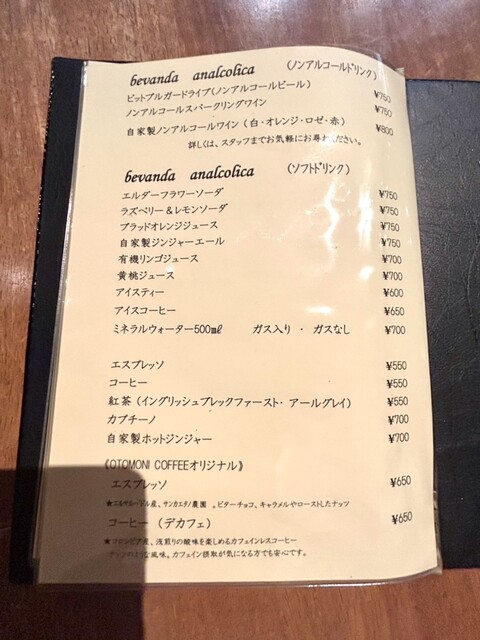 bevanda analcolica （ノンアルコールドリンク）
ビットブルガードライブ（ノンアルコールビール） ¥750
ノンアルコールスパークリングワイン ¥750
自家製ノンアルコールワイン（白・オレンジ・ロゼ・赤） ¥800
詳しくは、スタッフまでお気軽にお尋ねください。
bevanda analcolica （ソフトドリンク）
エルダーフラワーソーダ ¥750
ラズベリー＆レモンソーダ ¥750
ブラッドオレンジジュース ¥750
自家製ジンジャーエール ¥750
有機リンゴジュース ¥700
黄桃ジュース ¥700
アイスティー ¥600
アイスコーヒー ¥650
ミネラルウォーター500㎖ ガス入り ・ ガスなし ¥700
エスプレッソ ¥550
コーヒー ¥550
紅茶（イングリッシュブレックファースト・ アールグレイ） ¥550
カプチーノ ¥700
自家製ホットジンジャー ¥700
《OTOMONI COFFEEオリジナル》
エスプレッソ ¥650
★エルサルバドル産、サンカエタノ農園 。ビターチョコ、キャラメルやローストしたナッツ
コーヒー （デカフェ） ¥650
★コロンビア産、浅煎りの酸味を楽しめるカフェインレスコーヒー
のような風味。カフェイン摂取が気になる方でも安心です。